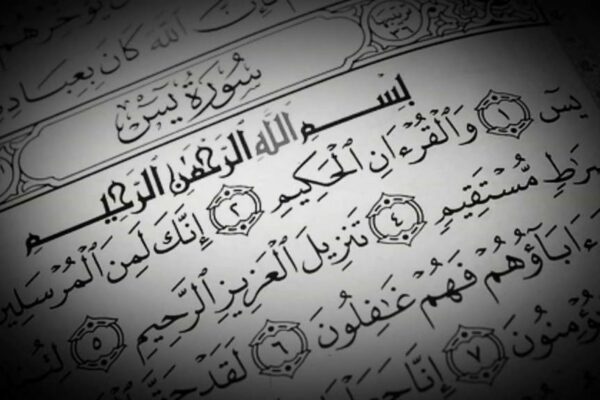 ٱللَّهَ كَانَ بِعِبَادِهِ
سُورَةُ يسٓ
بِسْمِ ٱللَّهِ ٱلرَّحْمَٰنِ ٱلرَّحِيمِ
يسٓ ١ وَٱلْقُرْءَانِ ٱلْحَكِيمِ ٢ إِنَّكَ لَمِنَ ٱلْمُرْسَلِينَ
صِرَٰطٍ مُّسْتَقِيمٍ ٤ تَنزِيلَ ٱلْعَزِيزِ ٱلرَّحِيمِ ٥
ءَابَآؤُهُمْ فَهُمْ غَٰفِلُونَ ٦ لَقَدْ حَقَّ
يُؤْمِنُونَ ٧ إِنَّا جَعَلْنَا